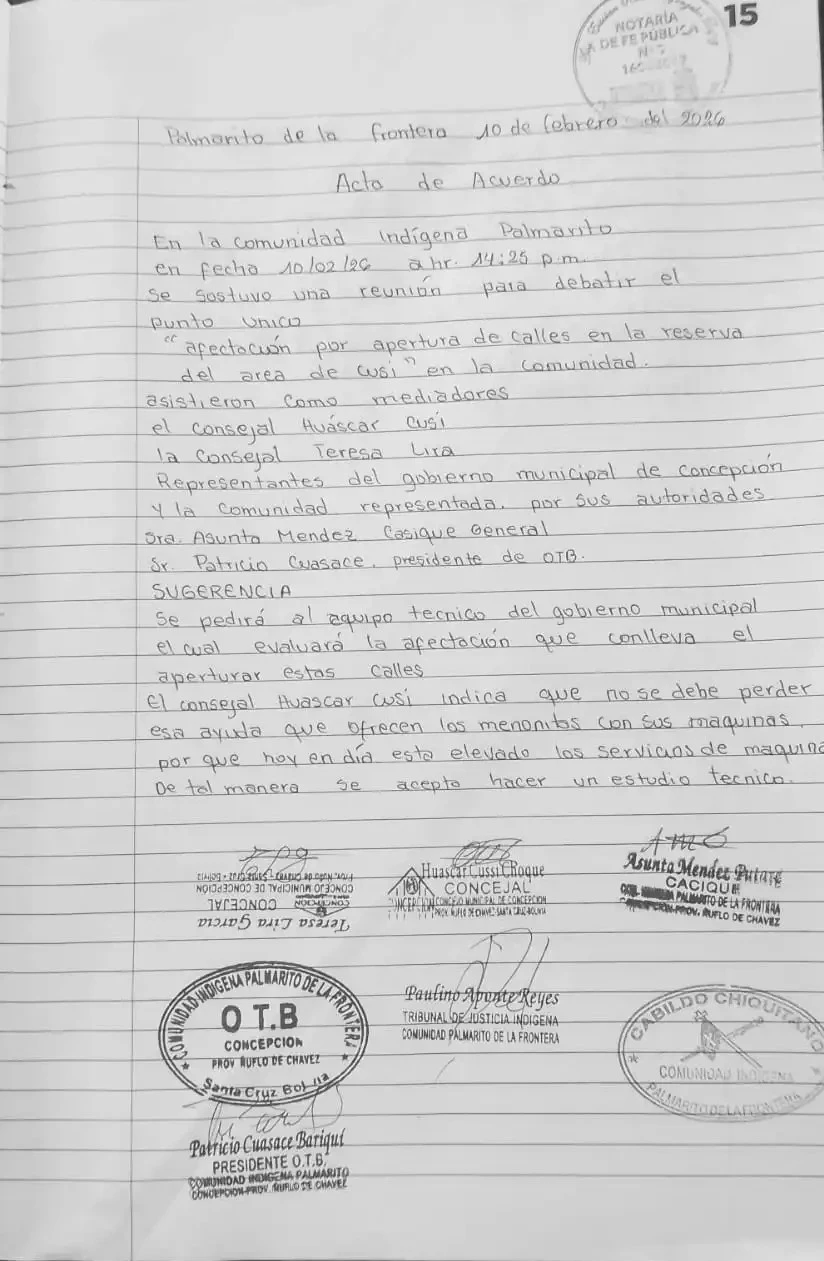 15
NOTARÍA
DE FE PÚBLICA
Palmarito de la frontera 10 de febrero del 2026
Acta de Acuerdo
En la comunidad indígena Palmarito
en fecha 10/02/26 a hr. 14:25 p.m.
se sostuvo una reunión para debatir el
punto unico
"afectación por apertura de calles en la reserva
del area de cusi" en la comunidad.
asistieron como mediadores
el consejal Huáscar Cusi
la Consejal Teresa Lira
Representantes del gobierno municipal de concepción
y la comunidad representada. por sus autoridades
Sra. Asunta Mendez Casique General
Sr. Patricio Cuasace. presidente de OTB.
SUGERENCIA
Se pedirá al equipo tecnico del gobierno municipal
el cual evaluará la afectación que conlleva el
aperturar estas calles
El consejal Huascar cusi indica que no se debe perder
esa ayuda que ofrecen los menonitas con sus maquinas.
por que hoy en día esta elevado los servicios de maquina
De tal manera se acepto hacer un estudio tecnico.
Teresa Lira Garcia
CONCEJAL
CONCEJO MUNICIPAL DE CONCEPCIÓN
Huascar Cussi Choque
CONCEJAL
CONCEJO MUNICIPAL DE CONCEPCION
PROV. ÑUFLO DE CHAVEZ-SANTA CRUZ-BOLIVIA
Asunta Mendez Putare
CACIQUE
PALMARITO DE LA FRONTERA
CONCEPCION-PROV. ÑUFLO DE CHAVEZ
COMUNIDAD INDIGENA PALMARITO DE LA FRONTERA
O T.B
CONCEPCION
PROV ÑUFLO DE CHAVEZ
Santa Cruz Bolivia
Paulino Aponte Reyes
TRIBUNAL DE JUSTICIA INDIGENA
COMUNIDAD PALMARITO DE LA FRONTERA
CABILDO CHIQUITANO
COMUNIDAD INDIGENA
PALMARITO DE LA FRONTERA
Patricio Cuasace Bariqui
PRESIDENTE O.T.B.
COMUNIDAD INDIGENA PALMARITO
CONCEPCION-PROV. ÑUFLO DE CHAVEZ